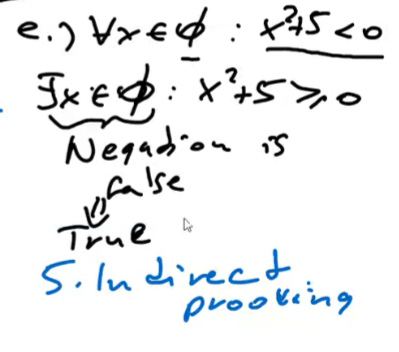 e.) ∀x∈ϕ : x²+5 < 0
∃x∈ϕ : x²+5 ⩾ 0
Negation is
false
⇓
True
5. Indirect
prooving